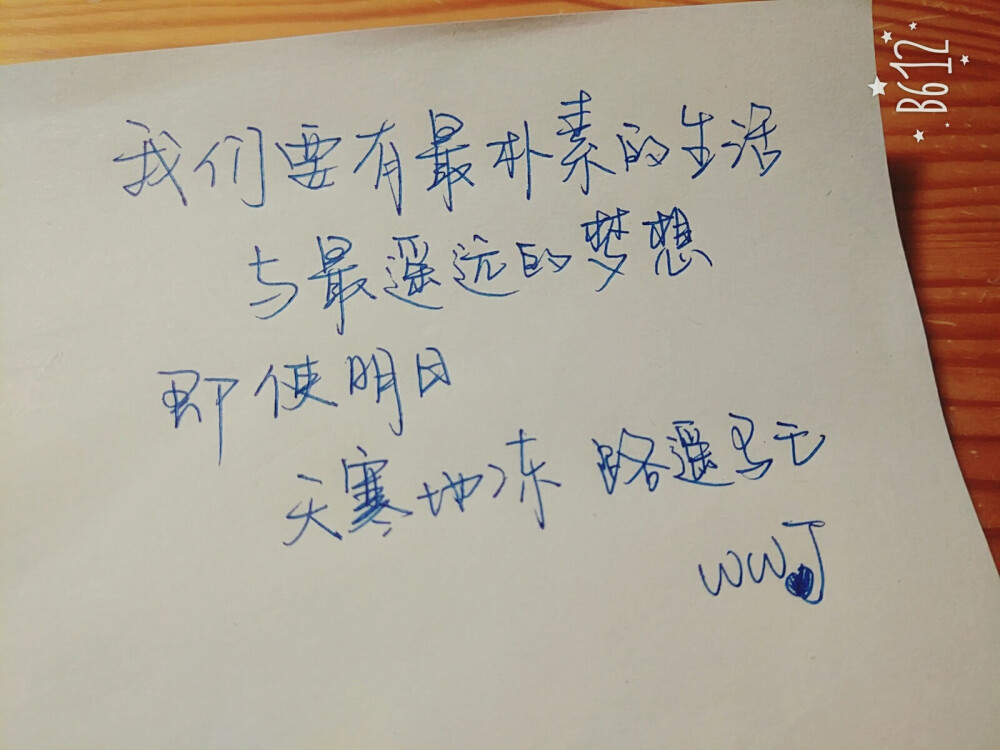 我们要有最朴素的生活
与最遥远的梦想
即使明日
天寒地冻 路遥马亡
WWJ
B612